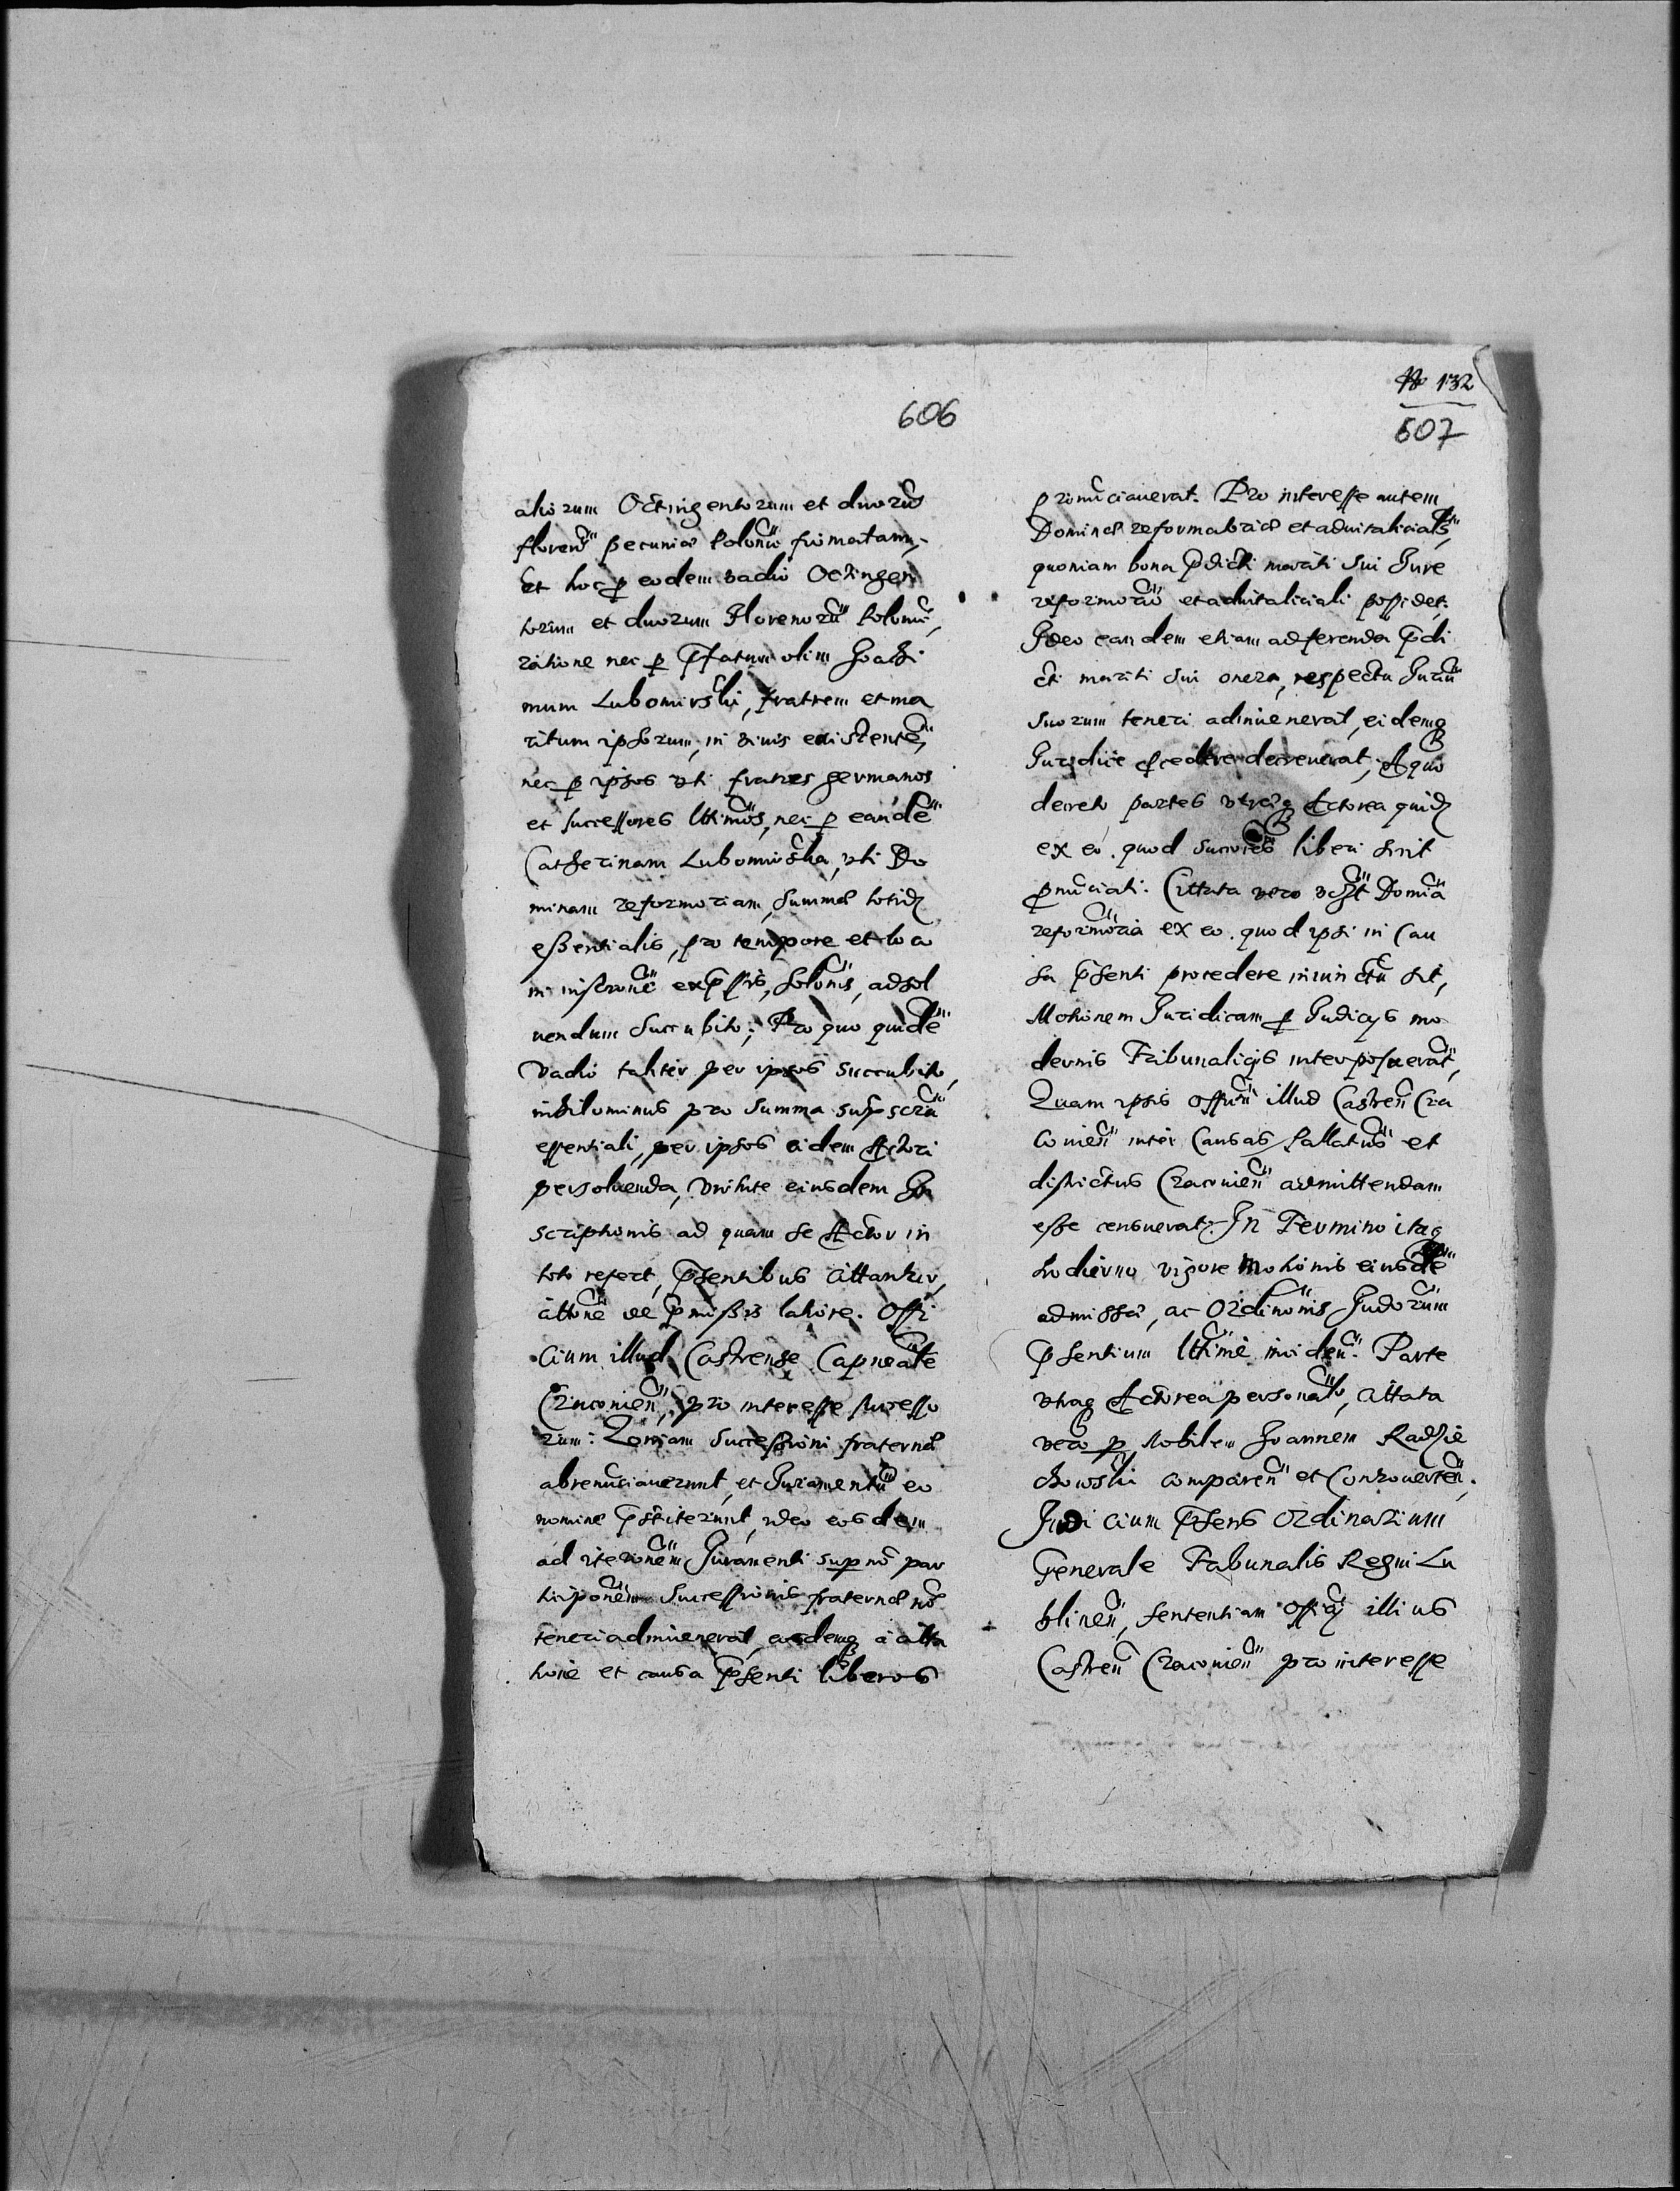 606
aliorum Octingentorum et duorũ
florenõ pecuniæ Polonũ firmatam,
Et hoc p eodem vadio Octingen
torum et duorum Florenorũ Polonũ,
ratione nec p p̃fatum olim Joachi
mum Lubomirski, fratrem et ma
ritum ipsorum, in viuis existentẽ,
nec p ipsos vti fratres germanos
et successores lttimos, nec p eandẽ
Catherinam Lubomirska, vti Do
minam reformoriam, summæ totidẽ
essentialis, pro tempore et loco
in inscrõne exp̃ssis, solõnis, ad sol
uendum succubito; Pro quo quidẽ
vadio taliter per ipsos succubito,
nihilominus pro summa suprascrã
essentiali, per ipsos eidem Actori
persoluenda, virtute eiusdem In
scriptionis ad quam se Actor in
toto refert, p̃sentibus Cittantur,
cittõne de p̃missis latiore. Offi
cium illud Castrense Capneale
Cracouieñ, pro interesse successo
rum: Quoniam successioni fraternæ
abrenũciauerunt, et Juramentũ eo
nomine p̃stiterunt, ideo eosdem
ad iterõnem Juramenti sup nõ par
ticipõnem successionis fraternæ nõ
teneri adinuenerat, eosdemq à citta
tione et causa p̃senti liberos
№ 132
607
pronũciauerat. Pro interesse autem
Dominæ reformatoriæ et aduitalicialis,
quoniam bona p̃dicti mariti sui Jure
reformorio et aduitaliciali possidet:
Ideo eandem etiam ad ferenda p̃di
cti mariti sui onera, respectu Juriũ
suorum teneri adinuenerat, eidemq
Juridice procedere decreuerat; A quo
decreto partes vtræq Actorea quidẽ
ex eo. quod succores liberi sint
pronũciati. Cittata vero vti Domĩa
reformoria ex eo. quod ipsi in Cau
sa p̃senti procedere iniunctũ sit,
Motionem Juridicam p Iudicys mo
dernis Tribunalicijs interposuerat,
Quam ipsis Officiũ illud Castreñ Cra
couieñ inter Causas Pallatũs et
districtus Cracouieñ admittendam
esse censuerat. In Termino itaq
hodierno vigore motionis eiusdẽ
admissæ, ac Ordinõnis Judiorũm
p̃sentium lttime incideñ. Parte
vtraq Actorea personalr, cittata
vero p Nobilem Joannem Radzie
chowski compareñ et Controuerteñ.
Judicium p̃sens Ordinarium
Generale Tribunalis Regni Lu
blineñ, sententiam Officij illius
Castreñ Cracouieñ pro interesse